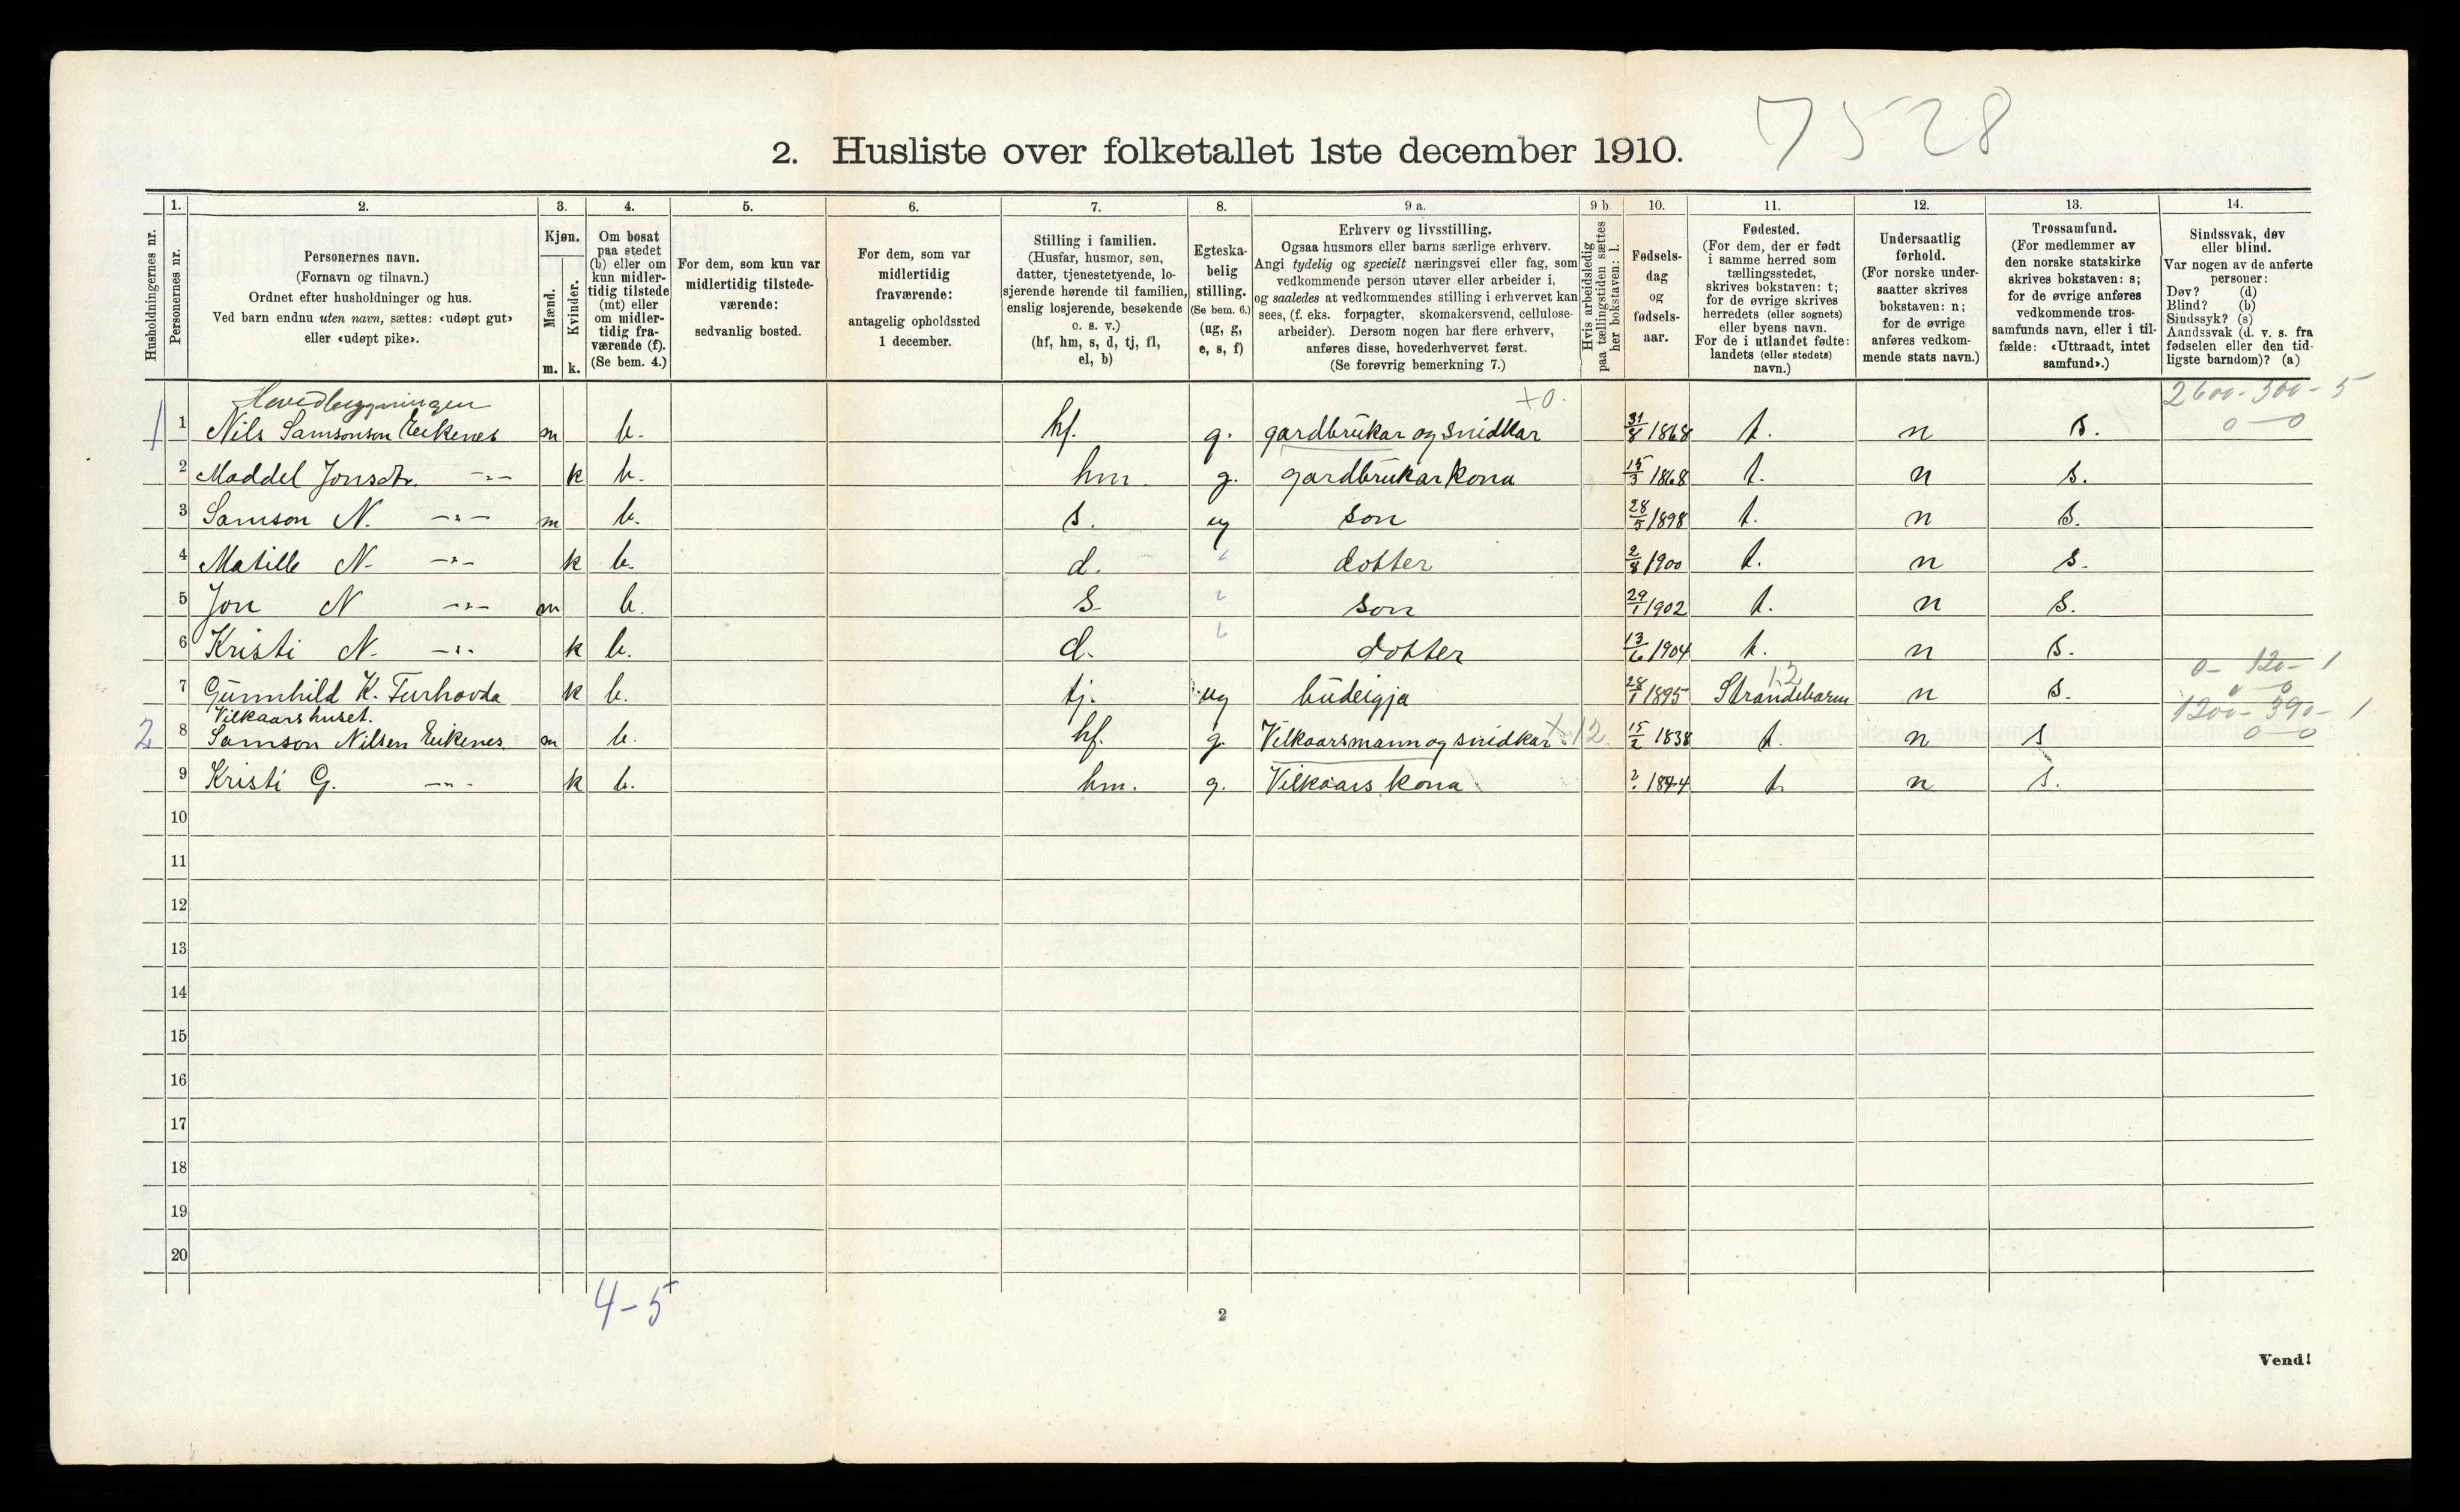 7528
2. Husliste over folketallet 1ste december 1910.
Husholdningernes nr.
1. Personernes nr.
2. Personernes navn.
(Fornavn og tilnavn.)
Ordnet efter husholdninger og hus.
Ved barn endnu uten navn, sættes: «udøpt gut»
eller «udøpt pike».
3. Kjøn.
Mænd. m.
Kvinder. k.
4. Om bosat
paa stedet
(b) eller om
kun midler-
tidig tilstede
(mt) eller
om midler-
tidig fra-
værende (f).
(Se bem. 4.)
5. For dem, som kun var
midlertidig tilstede-
værende:
sedvanlig bosted.
6. For dem, som var
midlertidig
fraværende:
antagelig opholdssted
1 december.
7. Stilling i familien.
(Husfar, husmor, søn,
datter, tjenestetyende, lo-
sjerende hørende til familien,
enslig losjerende, besøkende
o. s. v.)
(hf, hm, s, d, tj, fl,
el, b)
8. Egteska-
belig
stilling.
(Se bem. 6.)
(ug, g,
e, s, f)
9 a. Erhverv og livsstilling.
Ogsaa husmors eller barns særlige erhverv.
Angi tydelig og specielt næringsvei eller fag, som
vedkommende person utøver eller arbeider i,
og saaledes at vedkommendes stilling i erhvervet kan
sees, (f. eks. forpagter, skomakersvend, cellulose-
arbeider). Dersom nogen har flere erhverv,
anføres disse, hovederhvervet først.
(Se forøvrig bemerkning 7.)
9 b. Hvis arbeidsledig
paa tællingstiden sættes
her bokstaven: l.
10. Fødsels-
dag
og
fødsels-
aar.
11. Fødested.
(For dem, der er født
i samme herred som
tællingsstedet,
skrives bokstaven: t;
for de øvrige skrives
herredets (eller sognets)
eller byens navn.
For de i utlandet fødte:
landets (eller stedets)
navn.)
12. Undersaatlig
forhold.
(For norske under-
saatter skrives
bokstaven: n;
for de øvrige
anføres vedkom-
mende stats navn.)
13. Trossamfund.
(For medlemmer av
den norske statskirke
skrives bokstaven: s;
for de øvrige anføres
vedkommende tros-
samfunds navn, eller i til-
fælde: «Uttraadt, intet
samfund».)
14. Sindssvak, døv
eller blind.
Var nogen av de anførte
personer:
Døv? (d)
Blind? (b)
Sindssyk? (s)
Aandssvak (d. v. s. fra
fødselen eller den tid-
ligste barndom)? (a)
Hovedbygningen +0. 2600-500-5
1 1 Nils Samsonson Eikenes m b. hf. g. gardbrukar og snidkar 31/8 1868 t. n s. 0-0
2 Maddel Jonsdtr. -"- k b. hm. g. gardbrukarkona 15/3 1868 t. n s.
3 Samson N. -"- m b. s. ug son 28/5 1898 t. n s.
4 Matille N. -"- k b. d. " dotter 2/8 1900 t. n s.
5 Jon N -"- m b. s. " son 29/1 1902 t. n s.
6 Kristi N. -"- k b. d. " dotter 13/6 1904 t. n s.
12 0-120-1
7 Gunnhild K. Furhovda k b. tj. ug budeigja 28/1 1895 Strandebarm n s. 0-0
Vilkaarshuset. 1200-390-1
2 8 Samson Nilsen Eikenes. m b. hf. g. Vilkaarsmann og snidkar x.12. 15/2 1838 t. n s 0-0
9 Kristi G. -"- k b. hm. g. Vilkaars kona ? 1844 t. n s.
10
11
12
13
14
15
16
17
18
19
20
4-5
2
Vend!